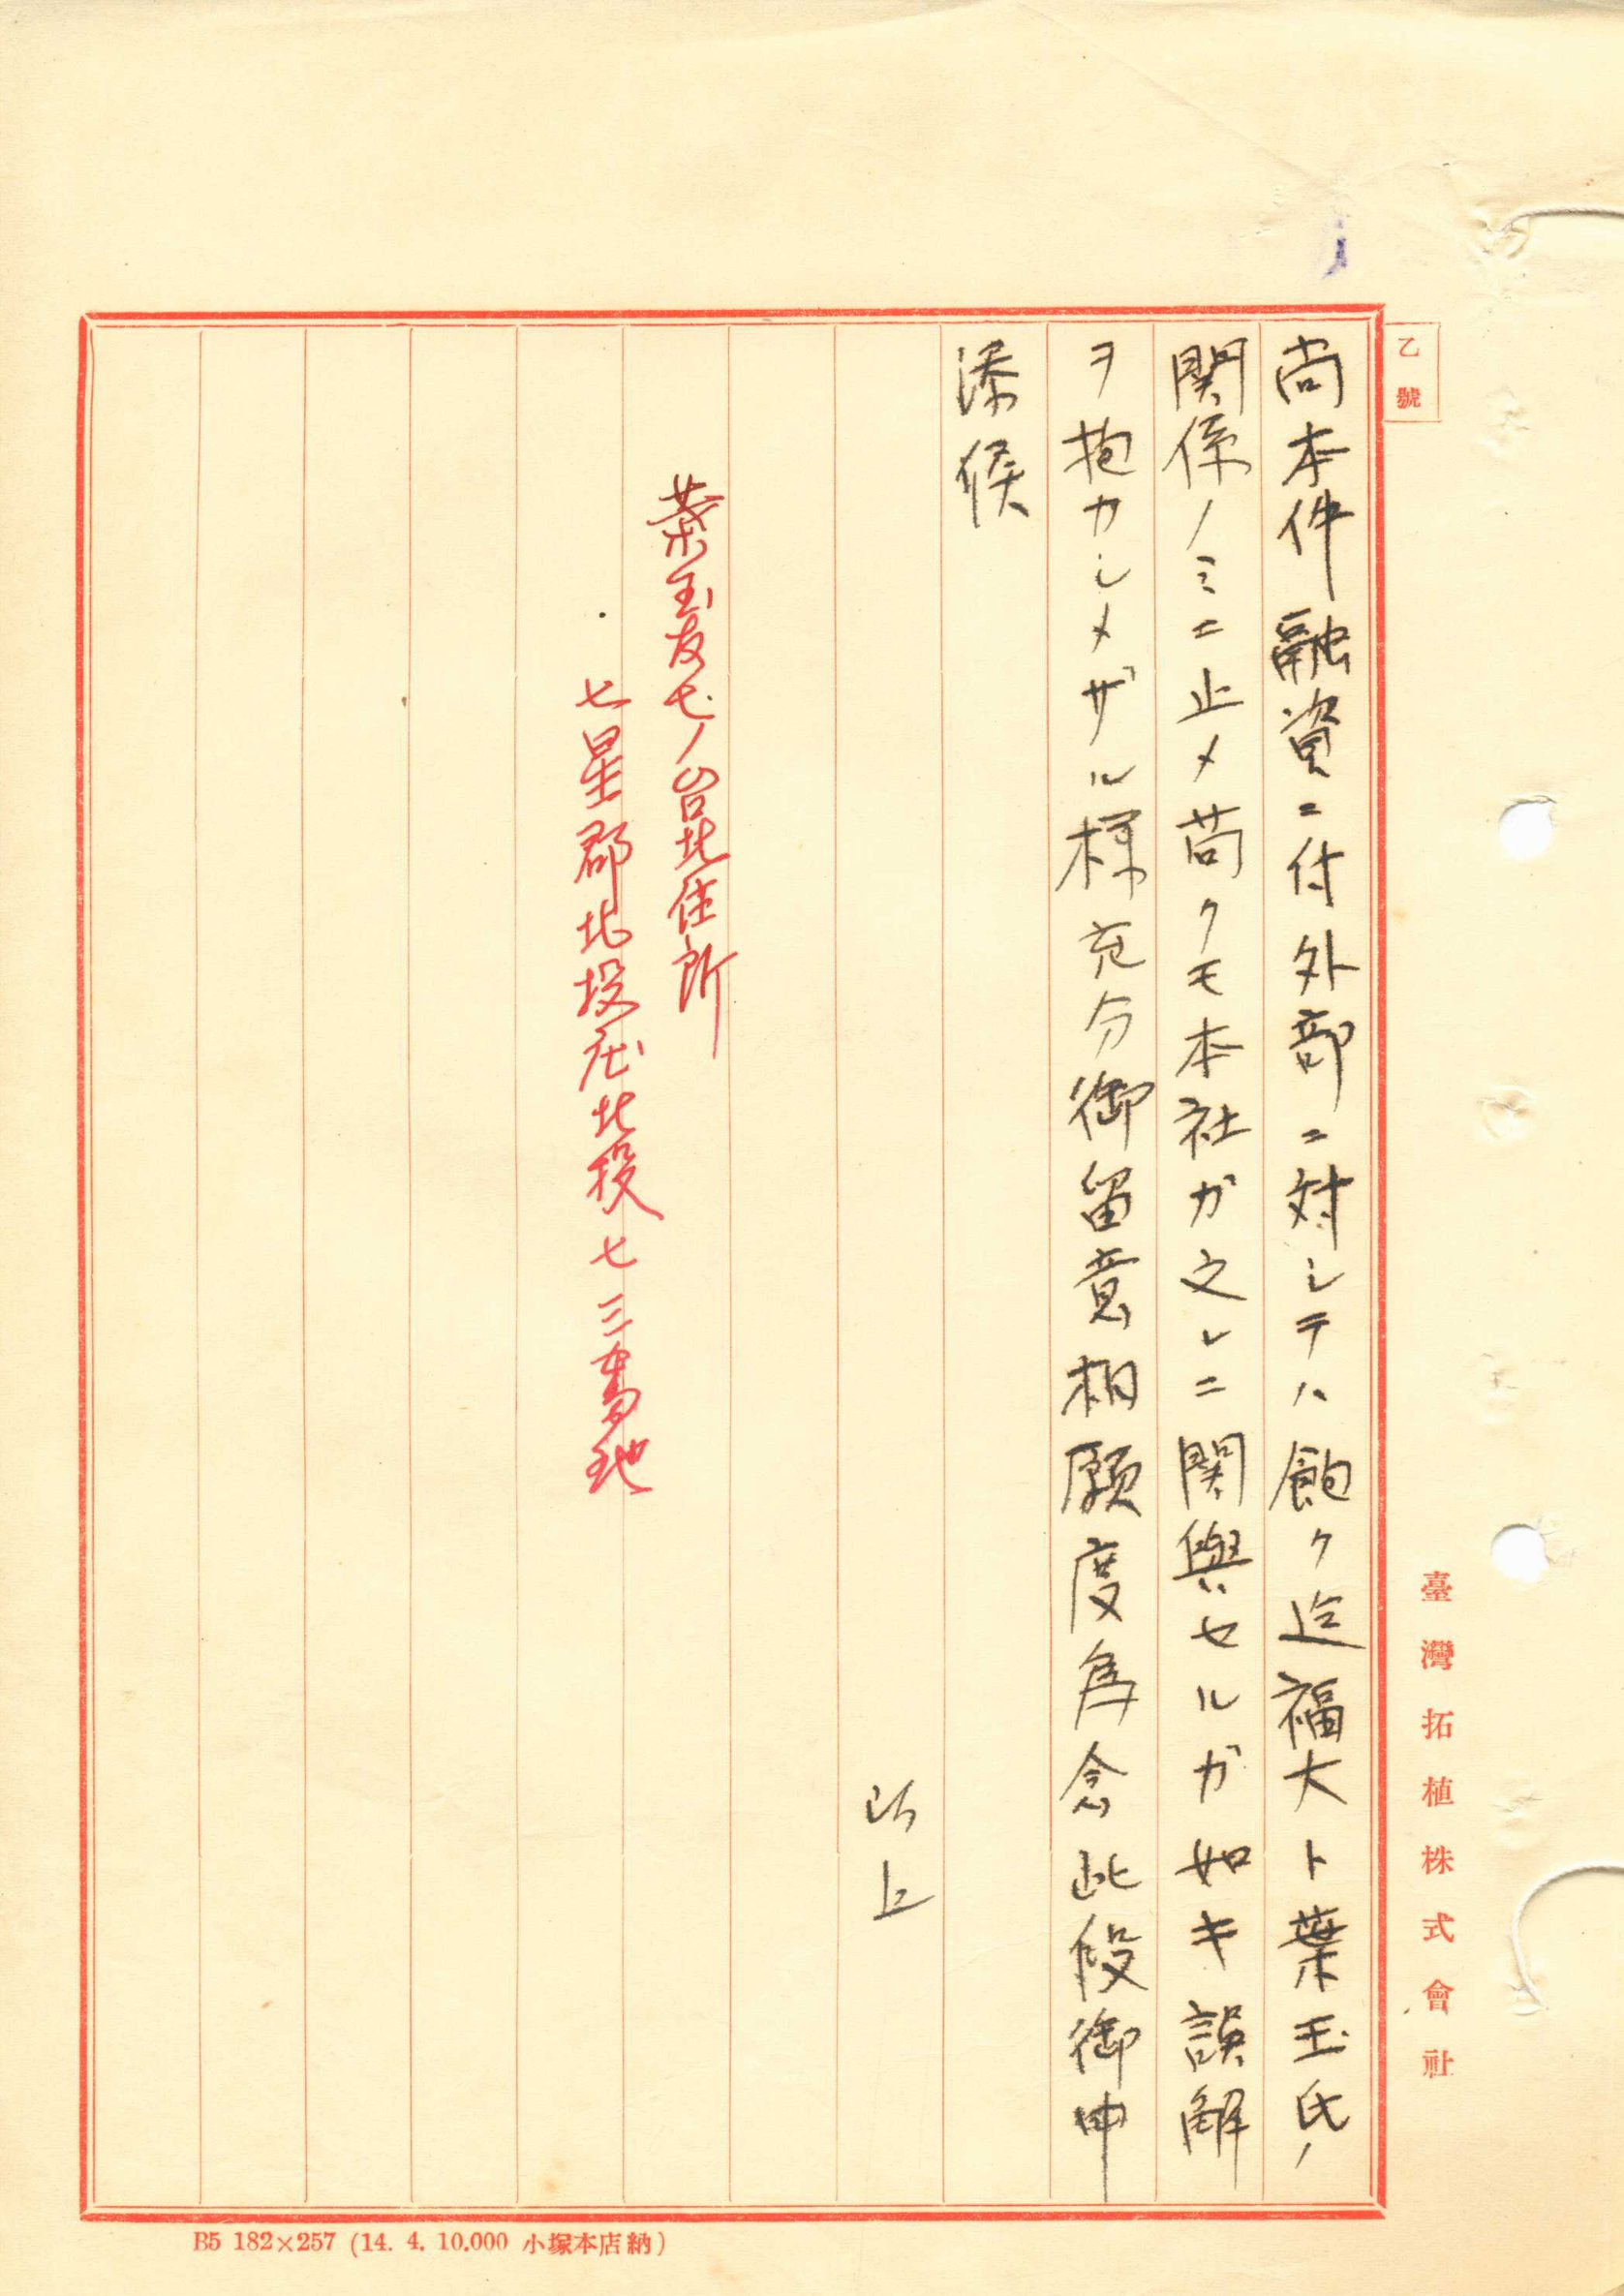 乙號
尚本件融資ニ付外部ニ対シテハ飽ク迄福大ト葉玉氏ノ
関係ノミニ止メ苟クモ本社ガ之レニ関與セルガ如キ誤解
ヲ抱カシメザル様充分御留意相願度為念此段御申
添候
以上
葉玉友七ノ台北住所
七星郡北投庄北投七三番地
臺灣拓殖株式會社
B5 182×257 (14. 4. 10,000 小塚本店納)